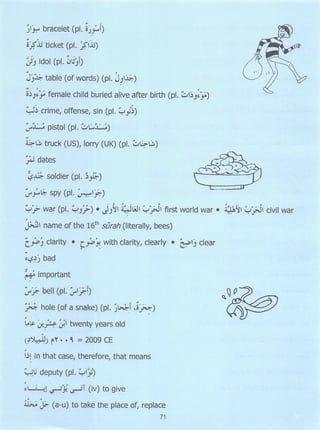 سِوار bracelet (pl. أسْوِرة)
تَذْكَرة ticket (pl. تَذاكِر)
وَثَن idol (pl. أَوْثان)
جَدْوَل table (of words) (pl. جَداوِل)
مَوْءُودة female child buried alive after birth (pl. مَوْءُودات)
ذَنْب crime, offense, sin (pl. ذُنوب)
مُسَدَّس pistol (pl. مُسَدَّسات)
شاحِنة truck (US), lorry (UK) (pl. شاحِنات)
تَمْر dates
جُنْدِيّ soldier (pl. جُنود)
جاسوس spy (pl. جَواسيس)
حَرْب war (pl. حُروب) • الحَرْب العالَمِيّة الأولى first world war • الحَرْب الأهْلِيّة civil war
النَّحْل name of the 16th sūrah (literally, bees)
وُضوح clarity • بِوُضوح with clarity, clearly • واضِح clear
important
جَرَس bell (pl. أجْراس)
hole (of a snake) (pl.
twenty years old
٢٠٠٩ = 2009 CE
إذَن in that case, therefore, that means
نائِب deputy (pl. نُوّاب)
(iv) to give
حَلَّ مَحَلَّ (a-u) to take the place of, replace
71